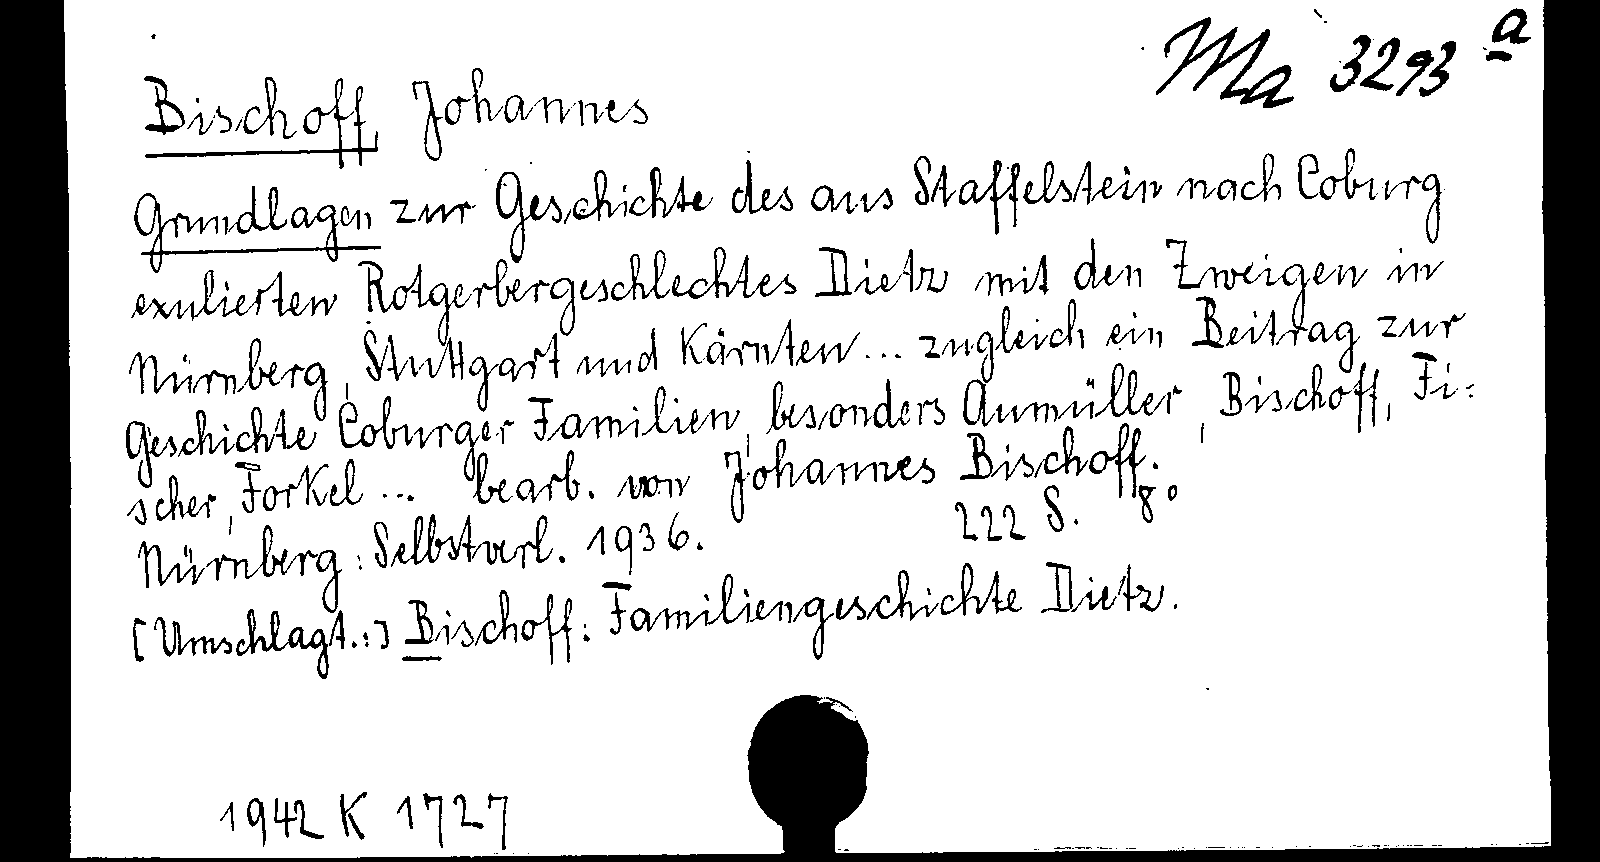 Ma 3293 a
Bischoff, Johannes
Grundlagen zur Geschichte des aus Staffelstein nach Coburg
exulierten Rotgerbergeschlechtes Dietz mit den Zweigen in
Nürnberg, Stuttgart und Kärnten... zugleich ein Beitrag zur
Geschichte Coburger Familien, besonders Aumüller, Bischoff, Fi=
scher, Forkel ... bearb. von Johannes Bischoff.
Nürnberg: Selbstverl. 1936. 222 S. 8°
[Umschlagt.:] Bischoff: Familiengeschichte Dietz.
1942 K 1727